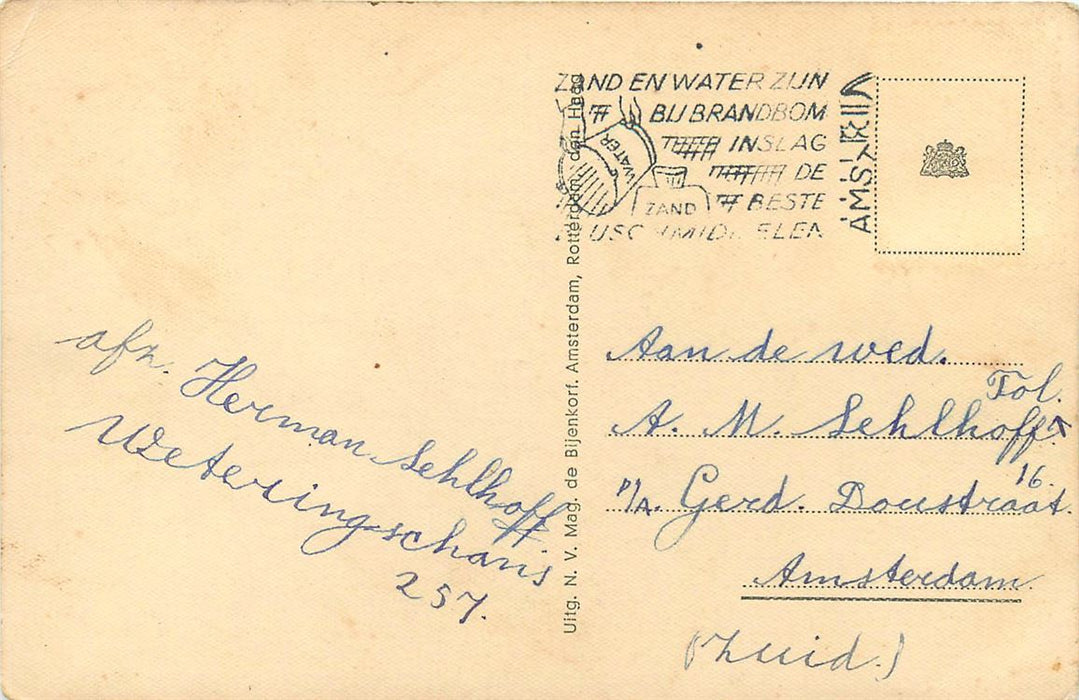 ZAND EN WATER ZIJN
BIJ BRANDBOM
INSLAG
DE
BESTE
WATER
ZAND
Uitg. N. V. Mag. de Bijenkorf. Amsterdam, Rotterdam, den Haag
afz. Herman Sehlhoff
Weteringschans
257.
Aan de wed.
A. M. Sehlhoff
Tol.
p/a. Gerd. Doustraat
16.
Amsterdam
(Zuid.)